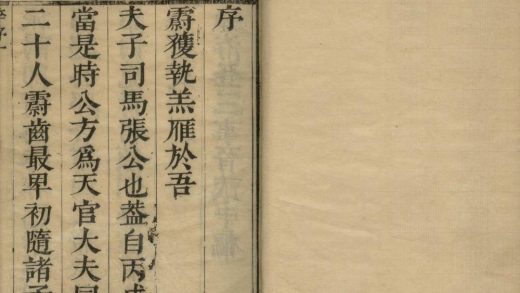 序
霨獲執羔雁於吾
夫子司馬張公也葢自丙戌
當是時公方爲天官大夫
二十人霨齒最卑初隨諸
序一